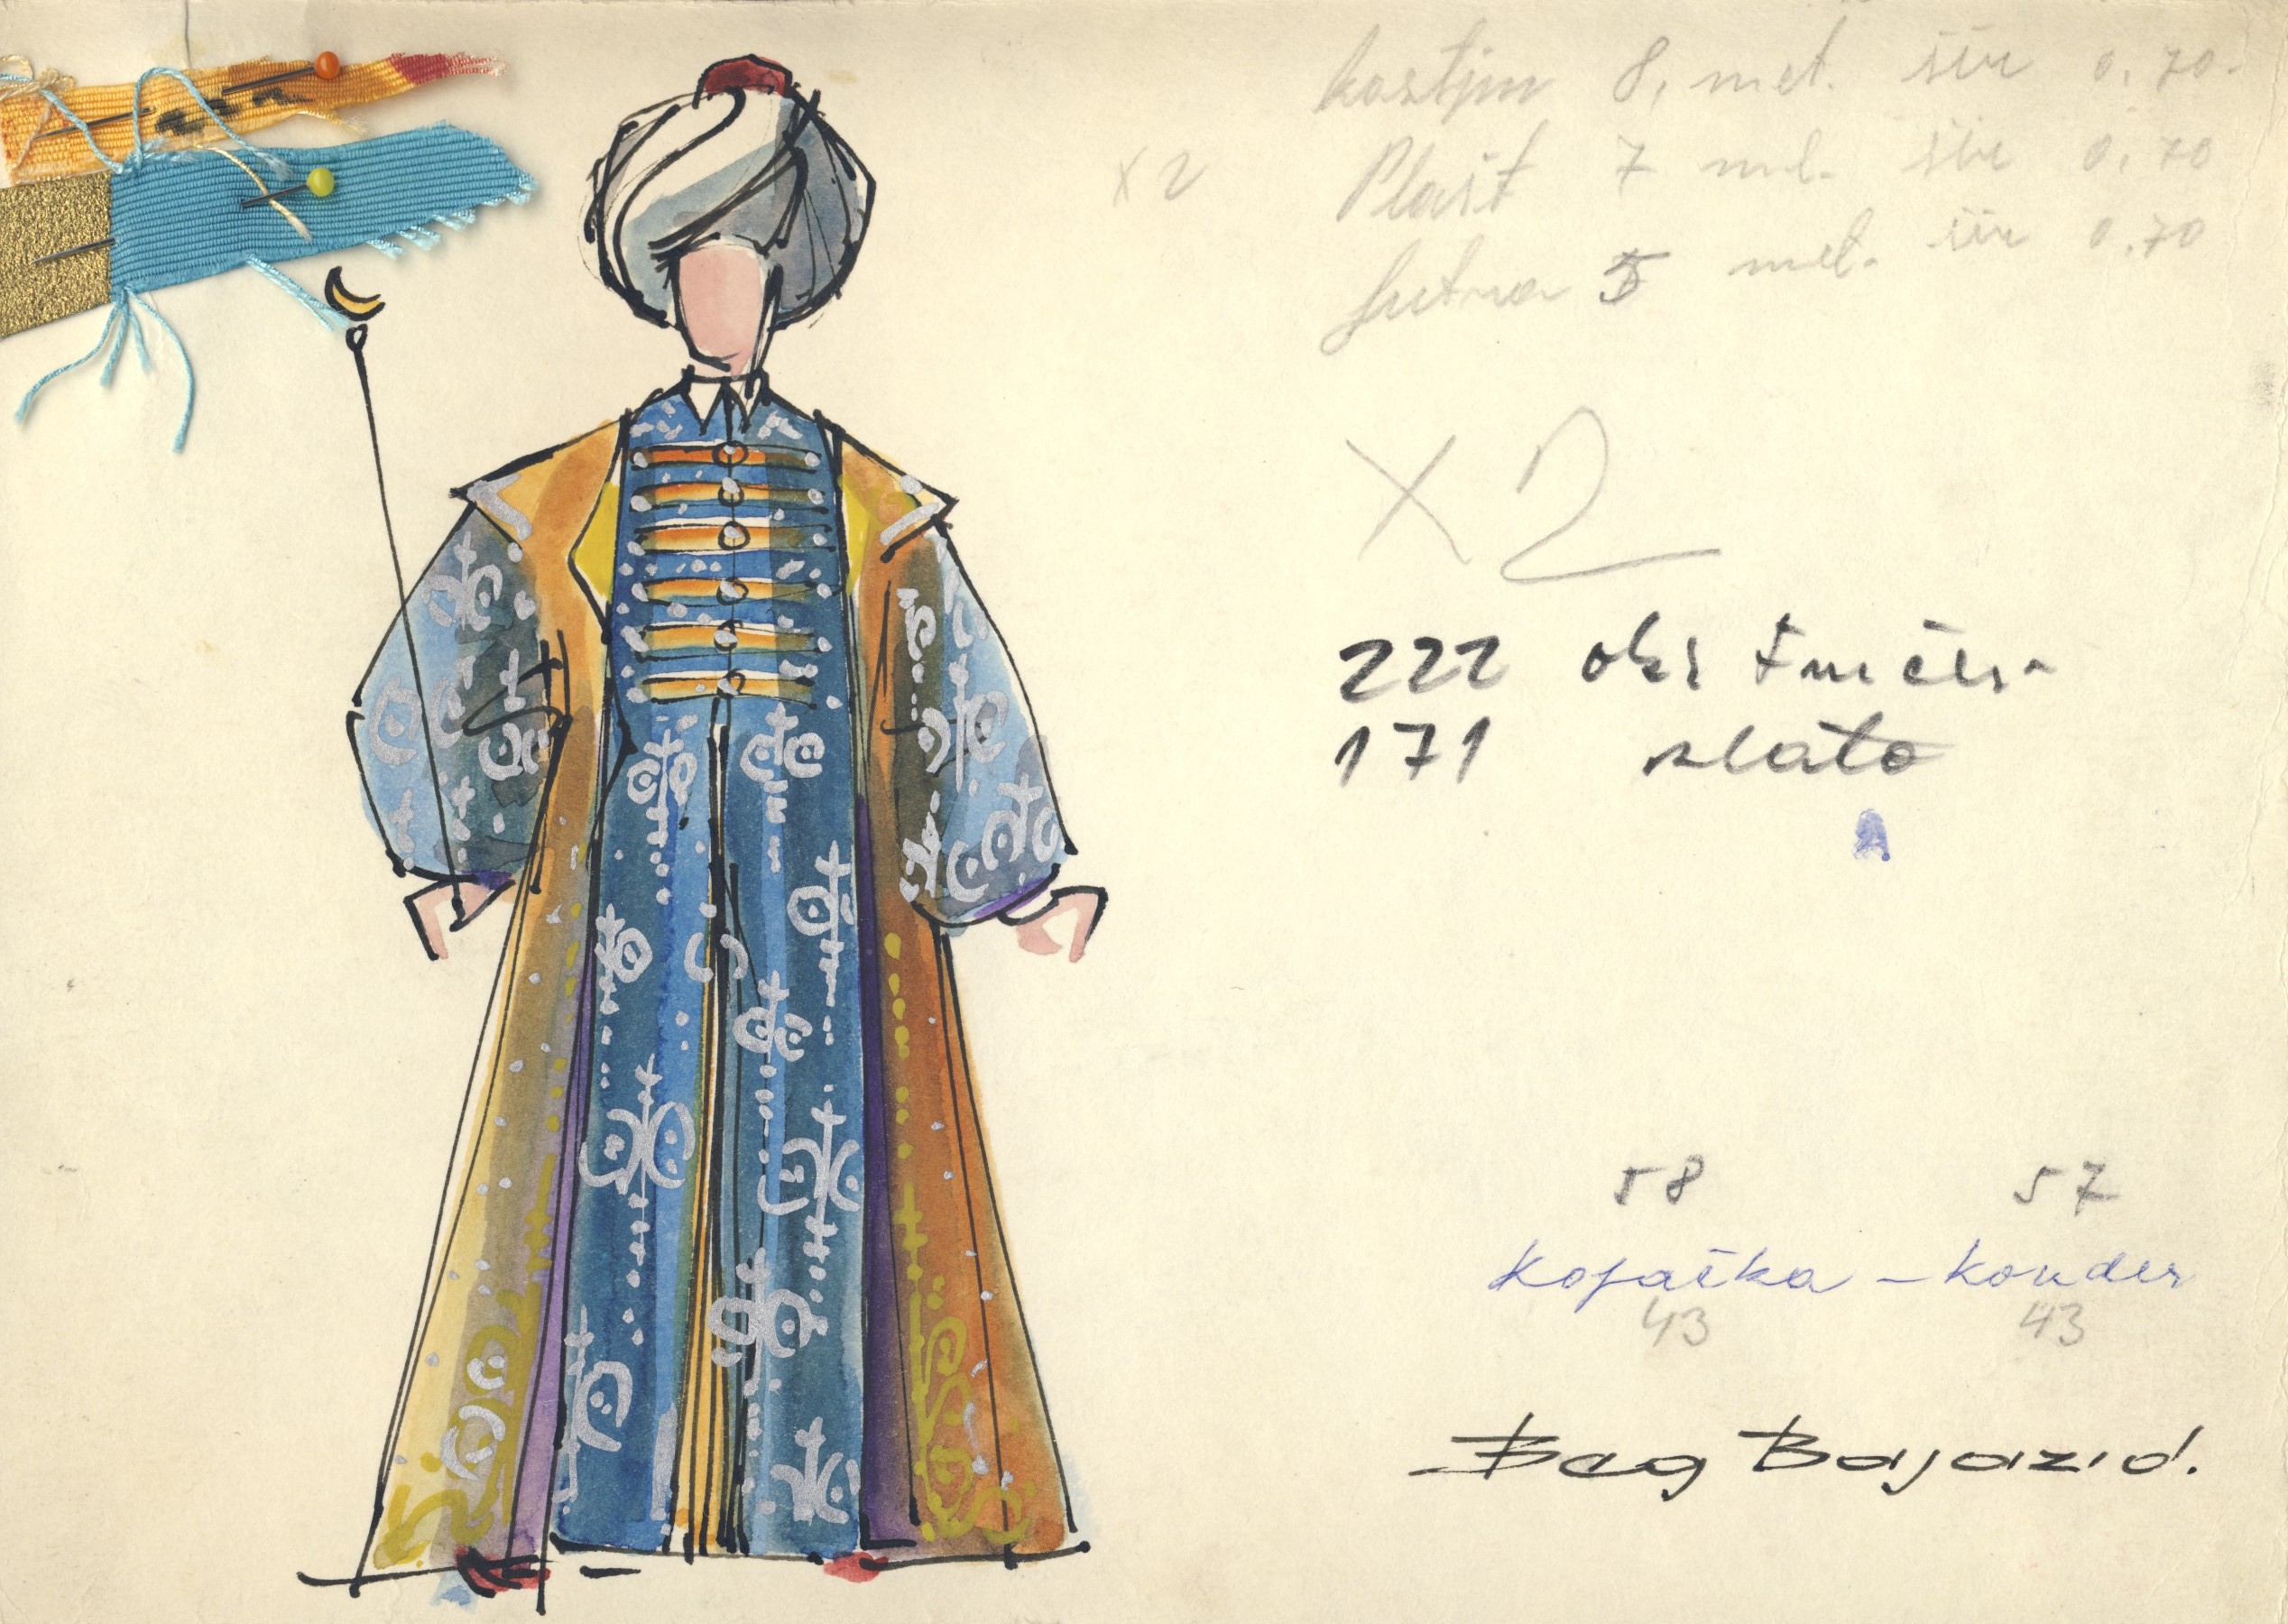 kostjm 8, met. šir 0,70.
x 2 Plašt 7 met. šir 0,70
futra 5 met. šir 0,70
x 2
222
171 zlato
A
58 57
Kopačka – konder
43 43
Beg Bajazid.